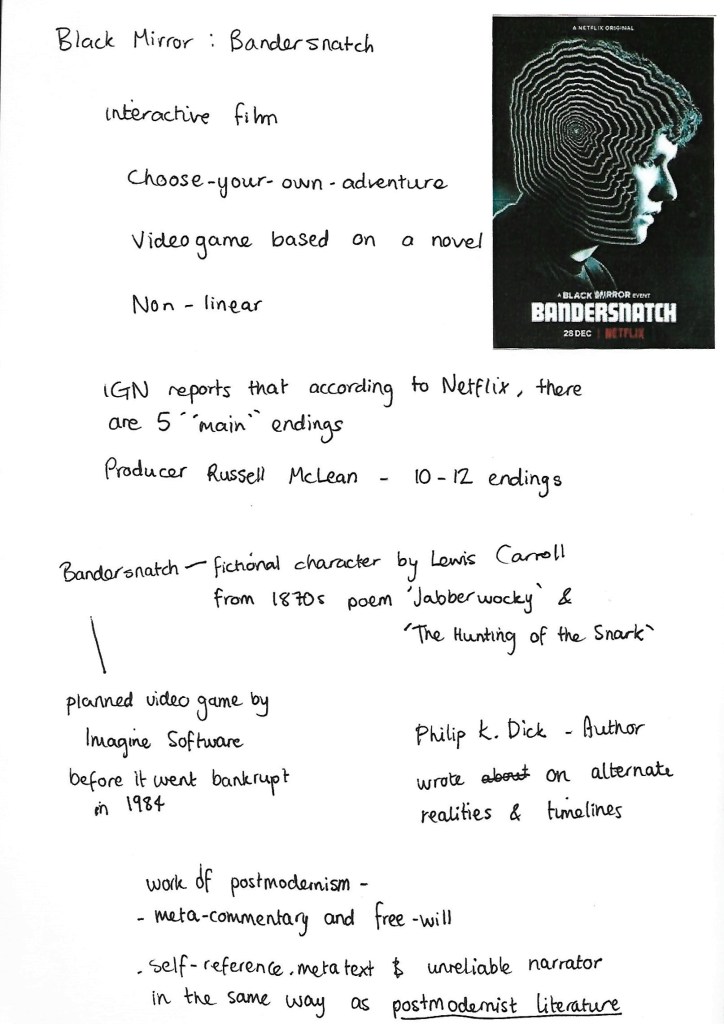 Black Mirror : Bandersnatch
A NETFLIX ORIGINAL
interactive film
Choose-your-own-adventure
Videogame based on a novel
Non-linear
A BLACK MIRROR EVENT
BANDERSNATCH
28 DEC | NETFLIX
IGN reports that according to Netflix, there
are 5 "main" endings
Producer Russell McLean - 10-12 endings
Bandersnatch - fictional character by Lewis Carroll
from 1870s poem 'Jabberwocky' &
'The Hunting of the Snark'
planned video game by
Imagine Software
before it went bankrupt
in 1984
Philip K. Dick - Author
wrote about on alternate
realities & timelines
work of postmodernism -
- meta-commentary and free-will
. self-reference, metatext & unreliable narrator
in the same way as postmodernist literature